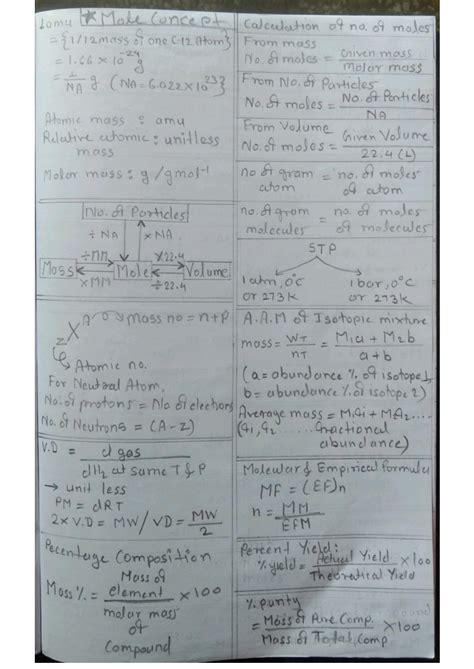 1amu ★ Mole Concept
= {1/12 mass of one C-12 Atom}
= 1.66 × 10⁻²⁴ g
= 1/NA g (NA = 6.022×10²³)
Atomic mass : amu
Relative atomic : unitless
mass
Molar mass : g / gmol⁻¹
No. of Particles
÷ NA × NA
÷MM ×22.4
Mass Mole Volume
×MM ÷22.4
zX^A → mass no = n+p
Atomic no.
For Neutral Atom,
No. of protons = No of electrons
No. of Neutrons = (A-Z)
V.D = d gas
dH₂ at same T & P
→ unit less
PM = dRT
2× V.D = MW / VD = MW/2
Pecentage Composition
Mass % = Mass of element × 100
molar mass
of
Compound
Calculation of no. of moles
From mass
No. of moles = Given mass
Molar mass
From No. of Particles
No. of moles = No. of Particles
NA
From Volume
No. of moles = Given Volume
22.4 (L)
no of gram = no. of moles
atom of atom
no. of grom = no. of moles
molecules of molecules
STP
1atm, 0°C 1 bar, 0°C
or 273 k or 273 K
A.A.M of Isotopic mixture
mass = WT/nT = M1a + M2b
a+b
(a = abundance % of isotope 1,
b = abundance % of isotope 2)
Average mass =
abundance)
Molecular & Empirical formula
MF = (EF)n
n = MM
EFM
Percent Yield:
% yield = Actual Yield × 100
Theoratical Yield
% purity
= Mass of Pure Comp. × 100
Mass of Total Comp